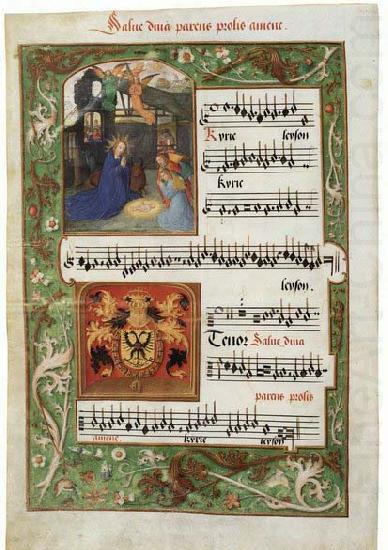 Salue diua parens prolis amene.
Kyrie leyson
Kyrie
leyson.
Tenor Salue diua
parens prolis
amene. Kyrie leyson